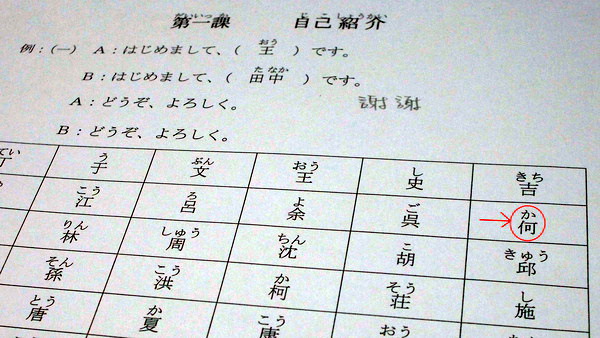 だいいっか じこしょうかい
第一課 自己紹介
おう
例：(一) A：はじめまして、( 王 ) です。
たなか
B：はじめまして、( 田中 ) です。
A：どうぞ、よろしく。 謝謝
B：どうぞ、よろしく。
てい う ぶん おう し きち
丁 于 文 王 史 吉
こう ろ よ ご か
江 呂 余 呉 何
りん しゅう ちん こ きゅう
林 周 沈 胡 邱
そん こう か そう し
孫 洪 柯 荘 施
とう か こう おう
唐 夏 康